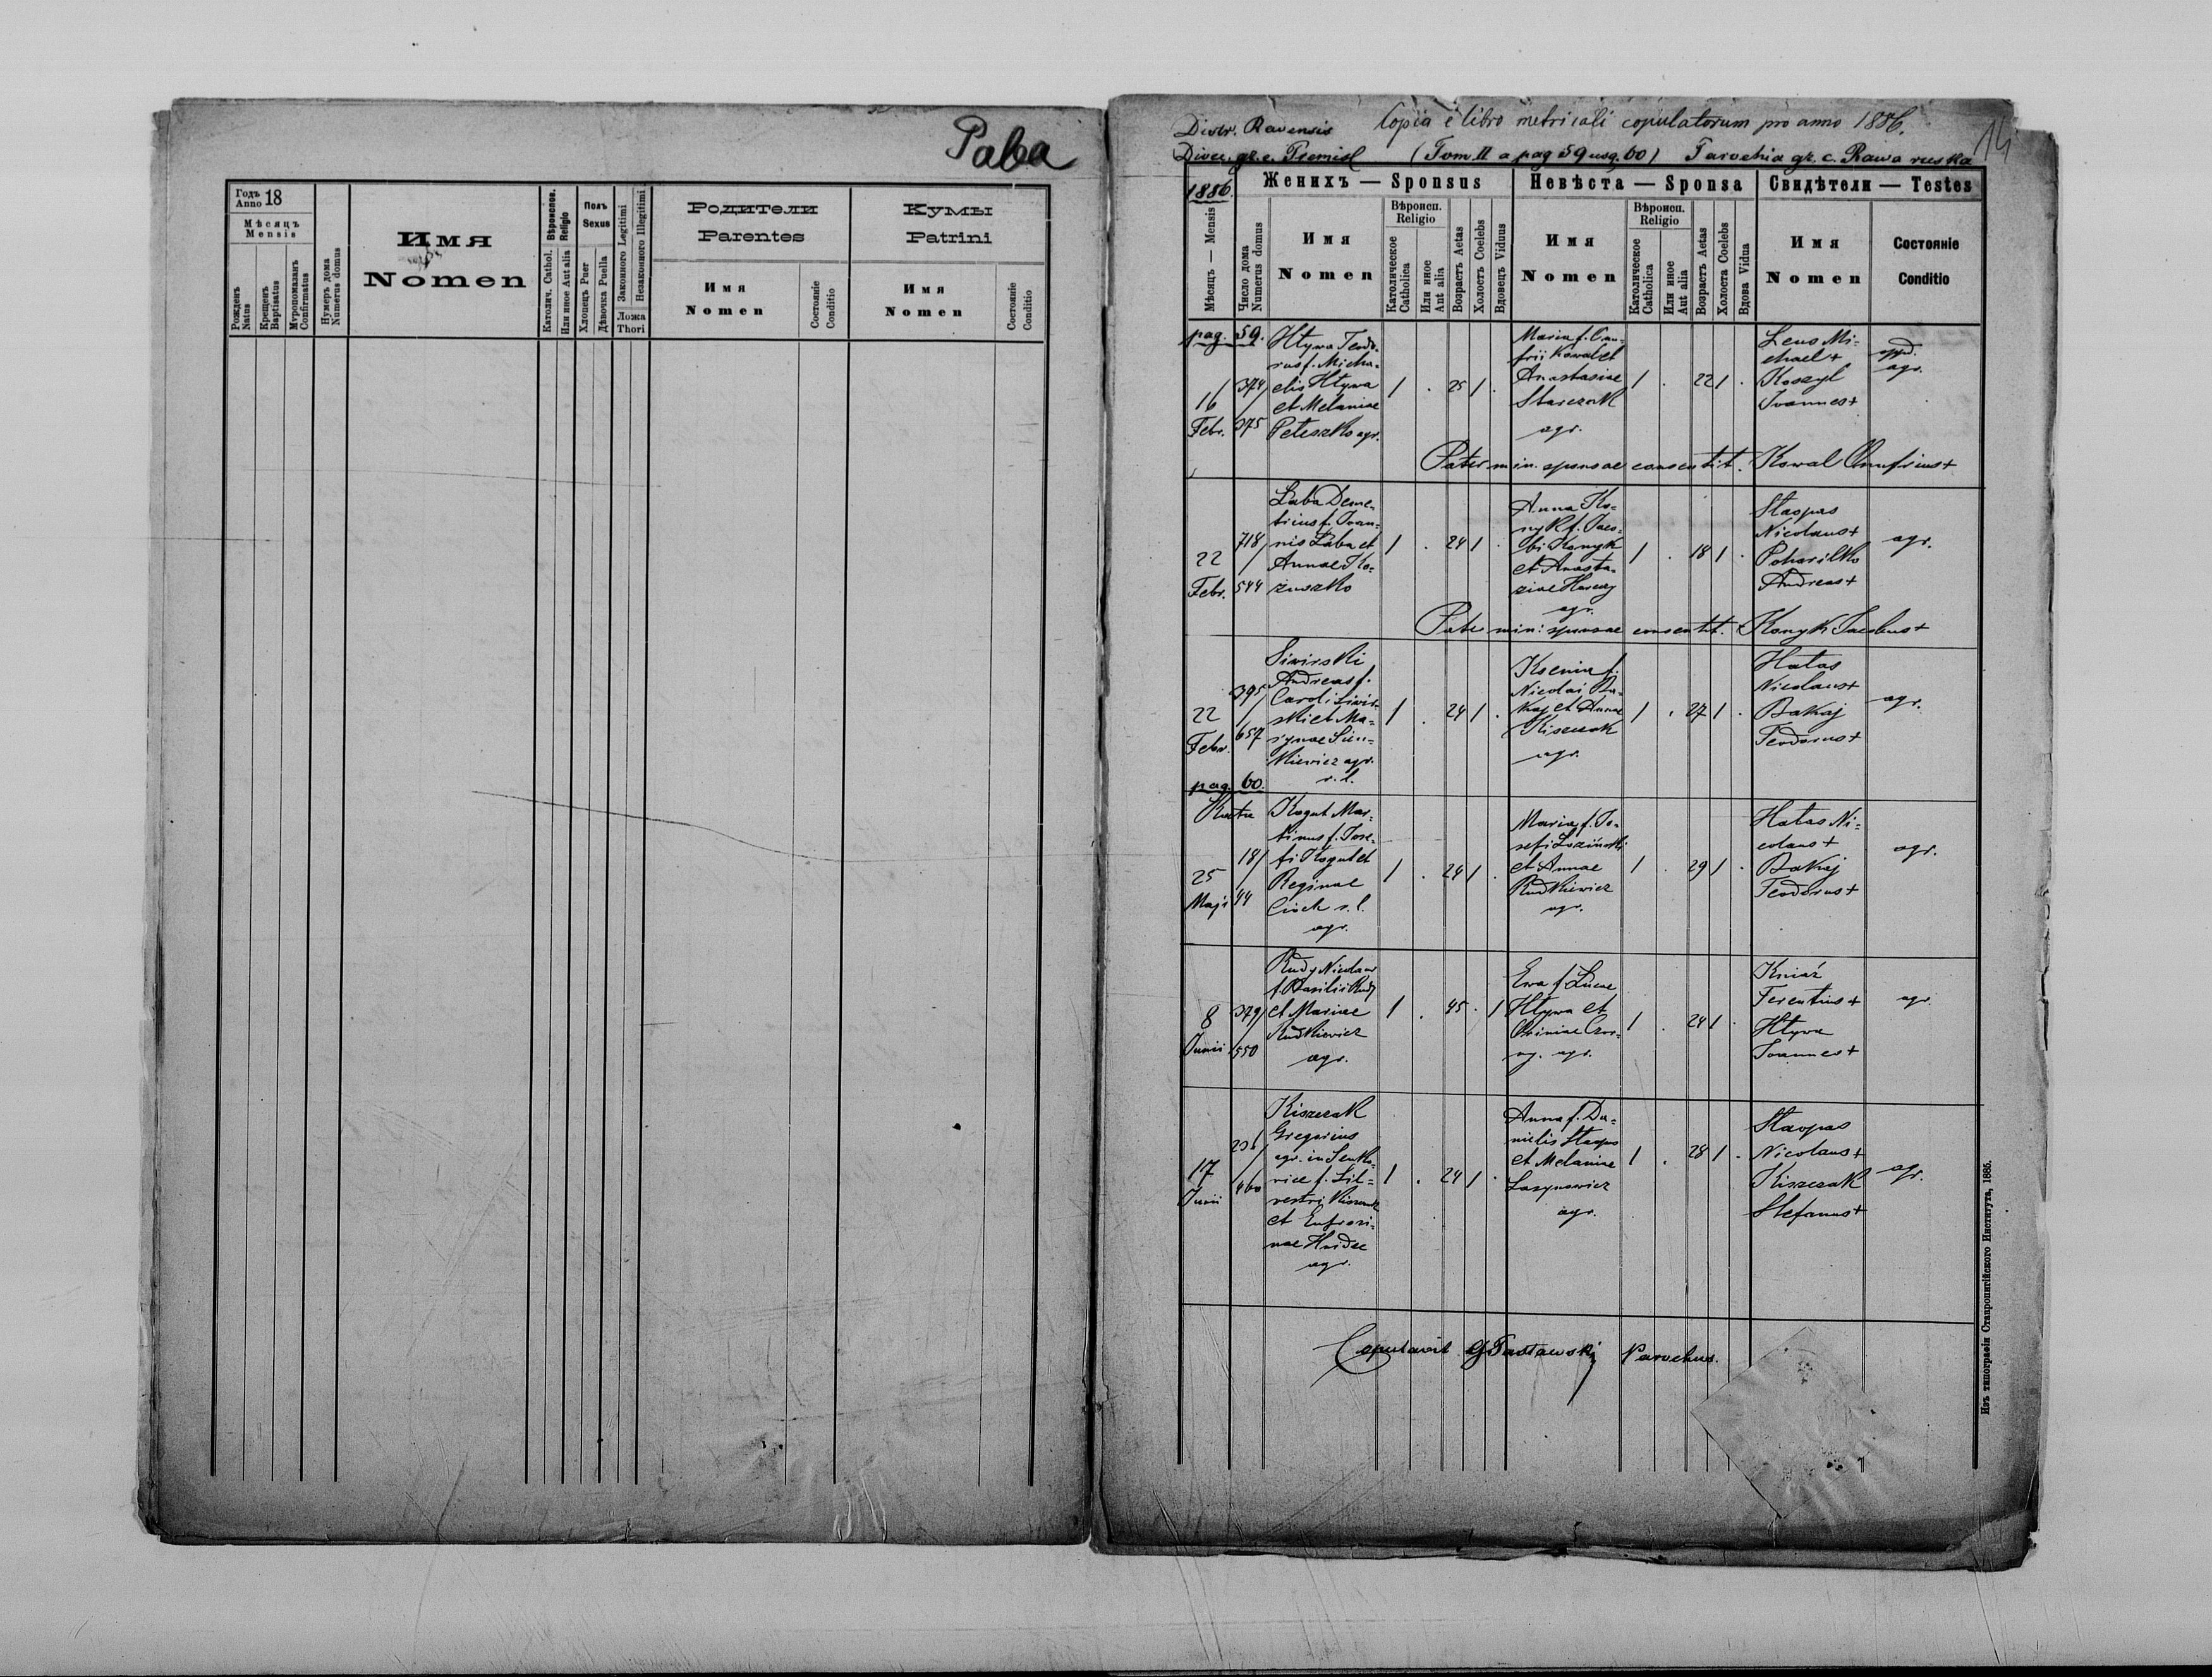 Раба
Годъ
Anno 18
Мѣсяцъ
Mensis
Рожденъ
Natus
Крещенъ
Baptisatus
Мѵропомазанъ
Confirmatus
Нумеръ дома
Numerus domus
Имя
Nomen
Вѣроиспов.
Religio
Католич. Cathol.
Или иное Aut alia
Полъ
Sexus
Хлопецъ Puer
Дѣвочка Puella
Законного Legitimi
Незаконного Illegitimi
Ложа
Thori
Родители
Parentes
Имя
Nomen
Состояніе
Conditio
Кумы
Patrini
Имя
Nomen
Состояніе
Conditio
Distr. Ravensis Copia è libro metricali copulatorum pro anno 1886.
14
Dioec. gr. c. Premisl (Tom II a pag 59 usq. 60) Parochia gr. c. Rawa ruska
1886.
Женихъ — Sponsus
Невѣста — Sponsa
Свидѣтели — Testes
Мѣсяцъ — Mensis
Число дома
Numerus domus
Имя
Nomen
Вѣроисп.
Religio
Католическое
Catholica
Или иное
Aut alia
Возрастъ Aetas
Холостъ Coelebs
Вдовецъ Viduus
Имя
Nomen
Вѣроисп.
Religio
Католическое
Catholica
Или иное
Aut alia
Возрастъ Aetas
Холоста Coelebs
Вдова Vidua
Имя
Nomen
Состояніе
Conditio
pag. 59.
16
Febr.
374/
375
Hływa Teodo-
rus f. Micha-
elis Hływa
et Melaniae
Peteszko agr.
1 . 25 1 .
Maria f. Onu-
frii Kowal et
Anastasiae
Starczak
agr.
1 . 22 1 .
Leus Mi-
chael +
Koszyl
Ioannes +
agr.
Pater min. sponsae consentit. Kowal Onufrius +
22
Febr.
718/
544
Łaba Deme-
trius f. Ioan-
nis Łaba et
Annae Ko-
żuszko
1 . 24 1 .
Anna Ko-
nyk f. Iaco-
bi Konyk
et Anasta-
ziae
agr.
1 . 18 1 .
Staspas
Nicolaus +
Poharilko
Andreas +
agr.
Pater min: sponsae consentit. Konyk Iacobus +
22
Febr.
395/
657
Siwirski
Andreas f.
Caroli Siwir-
ski et Ma-
rynae Sien-
kiewicz agr.
r. l.
1 . 24 1 .
Ksenia f.
Nicolai Ba-
kaj et Annae
Kiszczak
agr.
1 . 27 1 .
Hałas
Nicolaus +
Bakaj
Teodorus +
agr.
pag. 60.
25
Maji
18/
44
Kogut Mar-
tinus f. Iose-
fi Kogut et
Reginae
Cioch r. l.
agr.
1 . 24 1 .
Maria f. Io-
sefi Łoziński
et Annae
Rudkiewicz
agr.
1 . 29 1 .
Hałas Ni-
colaus +
Bakaj
Teodorus +
agr.
8
Junii
379/
550
Rudy Nicolaus
f. Basilii Rudy
et Mariae
Rudkiewicz
agr.
1 . 45 . 1
Ewa f. Lucae
Hływa et
agr.
1 . 24 1 .
Kniaź
Terentius +
Hływa
Ioannes +
agr.
17
Junii
460
Kiszczak
Gregorius
agr. in Senko-
vice f. Sil-
vestri Kiszczak
et Eufrosi-
nae
agr.
1 . 24 1 .
Anna f. Da-
nielis Staspas
et Melaniae
Łazynowicz
agr.
1 . 28 1 .
Staspas
Nicolaus +
Kiszczak
Stefanus +
agr.
Copulavit Parochus.
Изъ типографіи Ставропигійского Института, 1885.